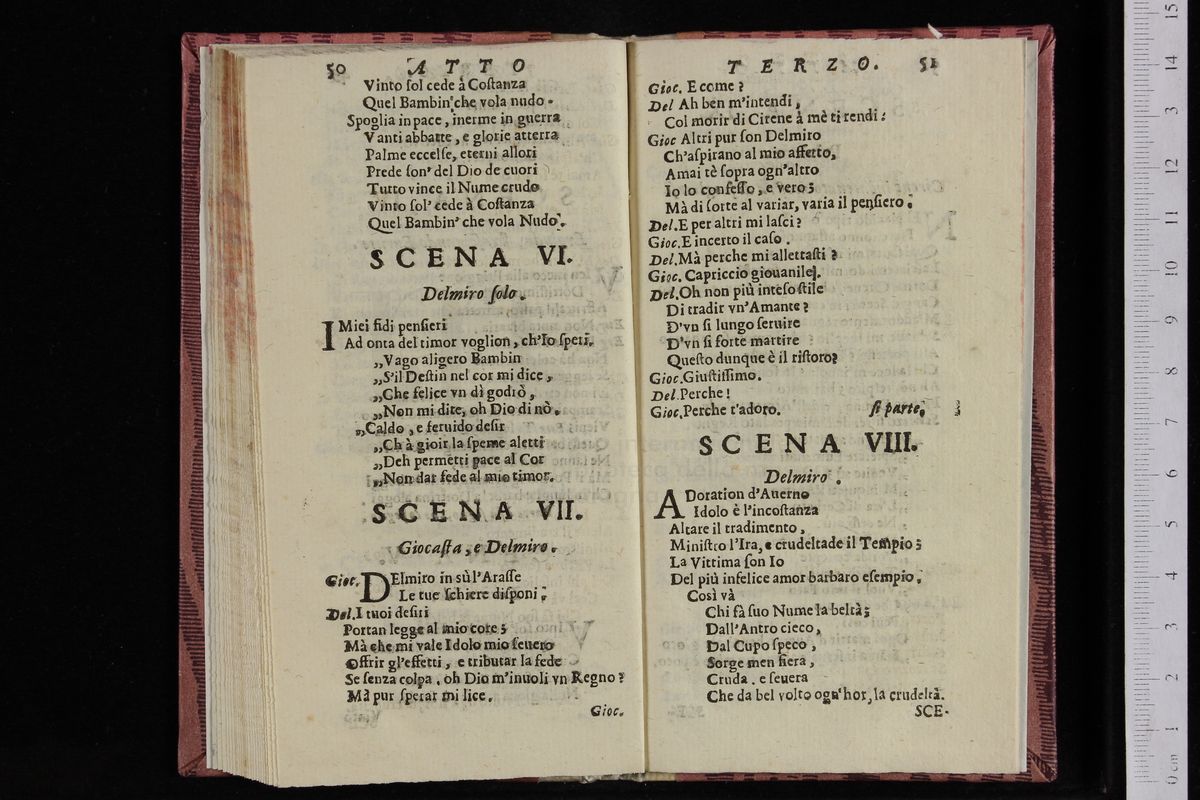 50 ATTO
Vinto ſol cede à Coſtanza
Quel Bambin' che vola nudo.
Spoglia in pace, inerme in guerra
Vanti abbatte, e glorie atterra
Palme eccelſe, eterni allori
Prede ſon' del Dio de cuori
Tutto vince il Nume crudo
Vinto ſol' cede à Coſtanza
Quel Bambin' che vola Nudo.
SCENA VI.
Delmiro ſolo.
I Miei fidi penſieri
Ad onta del timor voglion, ch'Io ſperi.
„Vago aligero Bambin
„S'il Deſtin nel cor mi dice,
„Che felice vn dì godiò,
„Non mi dite, oh Dio di nò.
„Caldo, e feruido deſir
„Ch à gioir la ſpeme aletti
„Deh permetti pace al Cor
„Non dar fede al mio timor.
SCENA VII.
Giocaſta, e Delmiro.
Gioc. DElmiro in sù l'Araſſe
Le tue ſchiere diſponi;
Del. I tuoi deſiri
Portan legge al mio core;
Mà che mi vale Idolo mio ſeuero
Offrir gl'effetti, e tributar la fede
Se ſenza colpa, oh Dio m'inuoli vn Regno?
Mà pur ſperar mi lice.
Gioc.
TERZO. 51
Gioc. E come?
Del Ah ben m'intendi,
Col morir di Cirene à mè ti rendi:
Gioc Altri pur ſon Delmiro
Ch'aſpirano al mio affetto,
Amai tè ſopra ogn'altro
Io lo confeſſo, e vero;
Mà di ſorte al variar, varia il penſiero.
Del. E per altri mi laſci?
Gioc. E incerto il caſo.
Del. Mà perche mi allettaſti?
Gioc. Capriccio giouanile.
Del. Oh non più inteſo ſtile
Di tradir vn'Amante?
D'vn ſi lungo ſeruire
D'vn ſi forte martire
Queſto dunque è il riſtoro?
Gioc. Giuſtiſſimo.
Del. Perche!
Gioc. Perche t'adoro. ſi parte.
SCENA VIII.
Delmiro.
ADoration d'Auerno
Idolo è l'incoſtanza
Altare il tradimento,
Miniſtro l'Ira, e crudeltade il Tempio;
La Vittima ſon Io
Del più infelice amor barbaro eſempio.
Così và
Chi fà ſuo Nume la beltà;
Dall'Antro cieco,
Dal Cupo ſpeco,
Sorge men fiera,
Cruda. e ſeuera
Che da bel volto ogn'hor, la crudeltà.
SCE-